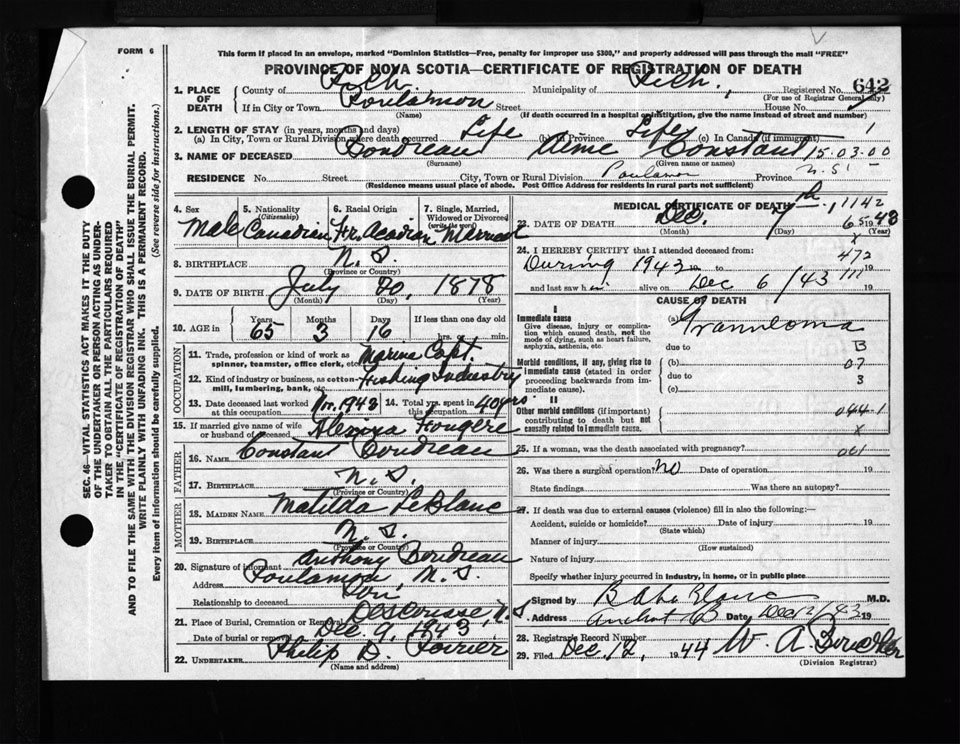 FORM 6
This form if placed in an envelope, marked "Dominion Statistics—Free, penalty for improper use $300," and properly addressed will pass through the mail "FREE"
PROVINCE OF NOVA SCOTIA—CERTIFICATE OF REGISTRATION OF DEATH
SEC. 46—VITAL STATISTICS ACT MAKES IT THE DUTY
OF THE UNDERTAKER OR PERSON ACTING AS UNDER-
TAKER TO OBTAIN ALL THE PARTICULARS REQUIRED
IN THE "CERTIFICATE OF REGISTRATION OF DEATH"
AND TO FILE THE SAME WITH THE DIVISION REGISTRAR WHO SHALL ISSUE THE BURIAL PERMIT.
WRITE PLAINLY WITH UNFADING INK. THIS IS A PERMANENT RECORD.
Every item of information should be carefully supplied. (See reverse side for instructions.)
1. PLACE OF DEATH
County of Rich. Municipality of Rich. Registered No. 642
(For use of Registrar General only)
If in City or Town Poulamon Street House No.
(Name) (If death occurred in a hospital or institution, give the name instead of street and number)
2. LENGTH OF STAY (in years, months and days)
(a) In City, Town or Rural Division where death occurred Life (b) in Province Life (c) In Canada (if immigrant)
3. NAME OF DECEASED Boudreau Constant 15.03.00
(Surname) (Given name or names)
RESIDENCE No. Street City, Town or Rural Division Poulamon Province N.S.
(Residence means usual place of abode. Post Office Address for residents in rural parts not sufficient)
4. Sex Male
5. Nationality (Citizenship) Canadian
6. Racial Origin Fr. Acadian
7. Single, Married, Widowed or Divorced (write the word) Married
8. BIRTHPLACE N.S.
(Province or Country)
9. DATE OF BIRTH July 20, 1878
(Month) (Day) (Year)
10. AGE in Years Months Days If less than one day old
65 3 16 hrs. or min.
OCCUPATION
11. Trade, profession or kind of work as spinner, teamster, office clerk, etc. Marine Capt.
12. Kind of industry or business, as cotton-mill, lumbering, bank, etc. Fishing Industry
13. Date deceased last worked at this occupation 1943
14. Total yrs. spent in this occupation 40 yrs.
15. If married give name of wife or husband of deceased Fougere
FATHER
16. NAME Constant Boudreau
17. BIRTHPLACE N.S.
(Province or Country)
MOTHER
18. MAIDEN NAME Matilda LeBlanc
19. BIRTHPLACE N.S.
(Province or Country)
20. Signature of informant Anthony Boudreau
Address Poulamon, N.S.
Relationship to deceased Son
21. Place of Burial, Cremation or Removal Descousse, N.S
Date of burial or removal Dec. 9, 1943
22. UNDERTAKER Philip D. Poirier
(Name and address)
MEDICAL CERTIFICATE OF DEATH
23. DATE OF DEATH Dec. 7th 1943
(Month) (Day) (Year)
1142
65
24. I HEREBY CERTIFY that I attended deceased from:
During 1943 19 to 19
472
and last saw h alive on Dec 6/43 19
111
CAUSE OF DEATH
I
Immediate cause
Give disease, injury or complica-
tion which caused death, not the
mode of dying, such as heart failure,
asphyxia, asthenia, etc.
(a) Granuloma
due to B
Morbid conditions, if any, giving rise to
immediate cause (stated in order
proceeding backwards from im-
mediate cause).
(b) 07
due to 3
(c)
II
Other morbid conditions (if important)
contributing to death but not
causally related to immediate cause.
044-1
x
25. If a woman, was the death associated with pregnancy? 061
26. Was there a surgical operation? No Date of operation 19
State findings Was there an autopsy?
27. If death was due to external causes (violence) fill in also the following:—
Accident, suicide or homicide? Date of injury 19
(State which)
Manner of injury
(How sustained)
Nature of injury
Specify whether injury occurred in industry, in home, or in public place
Signed by M.D.
Address Date 19
28. Registrar's Record Number
29. Filed Dec. 12, 1944 W. A.
(Division Registrar)